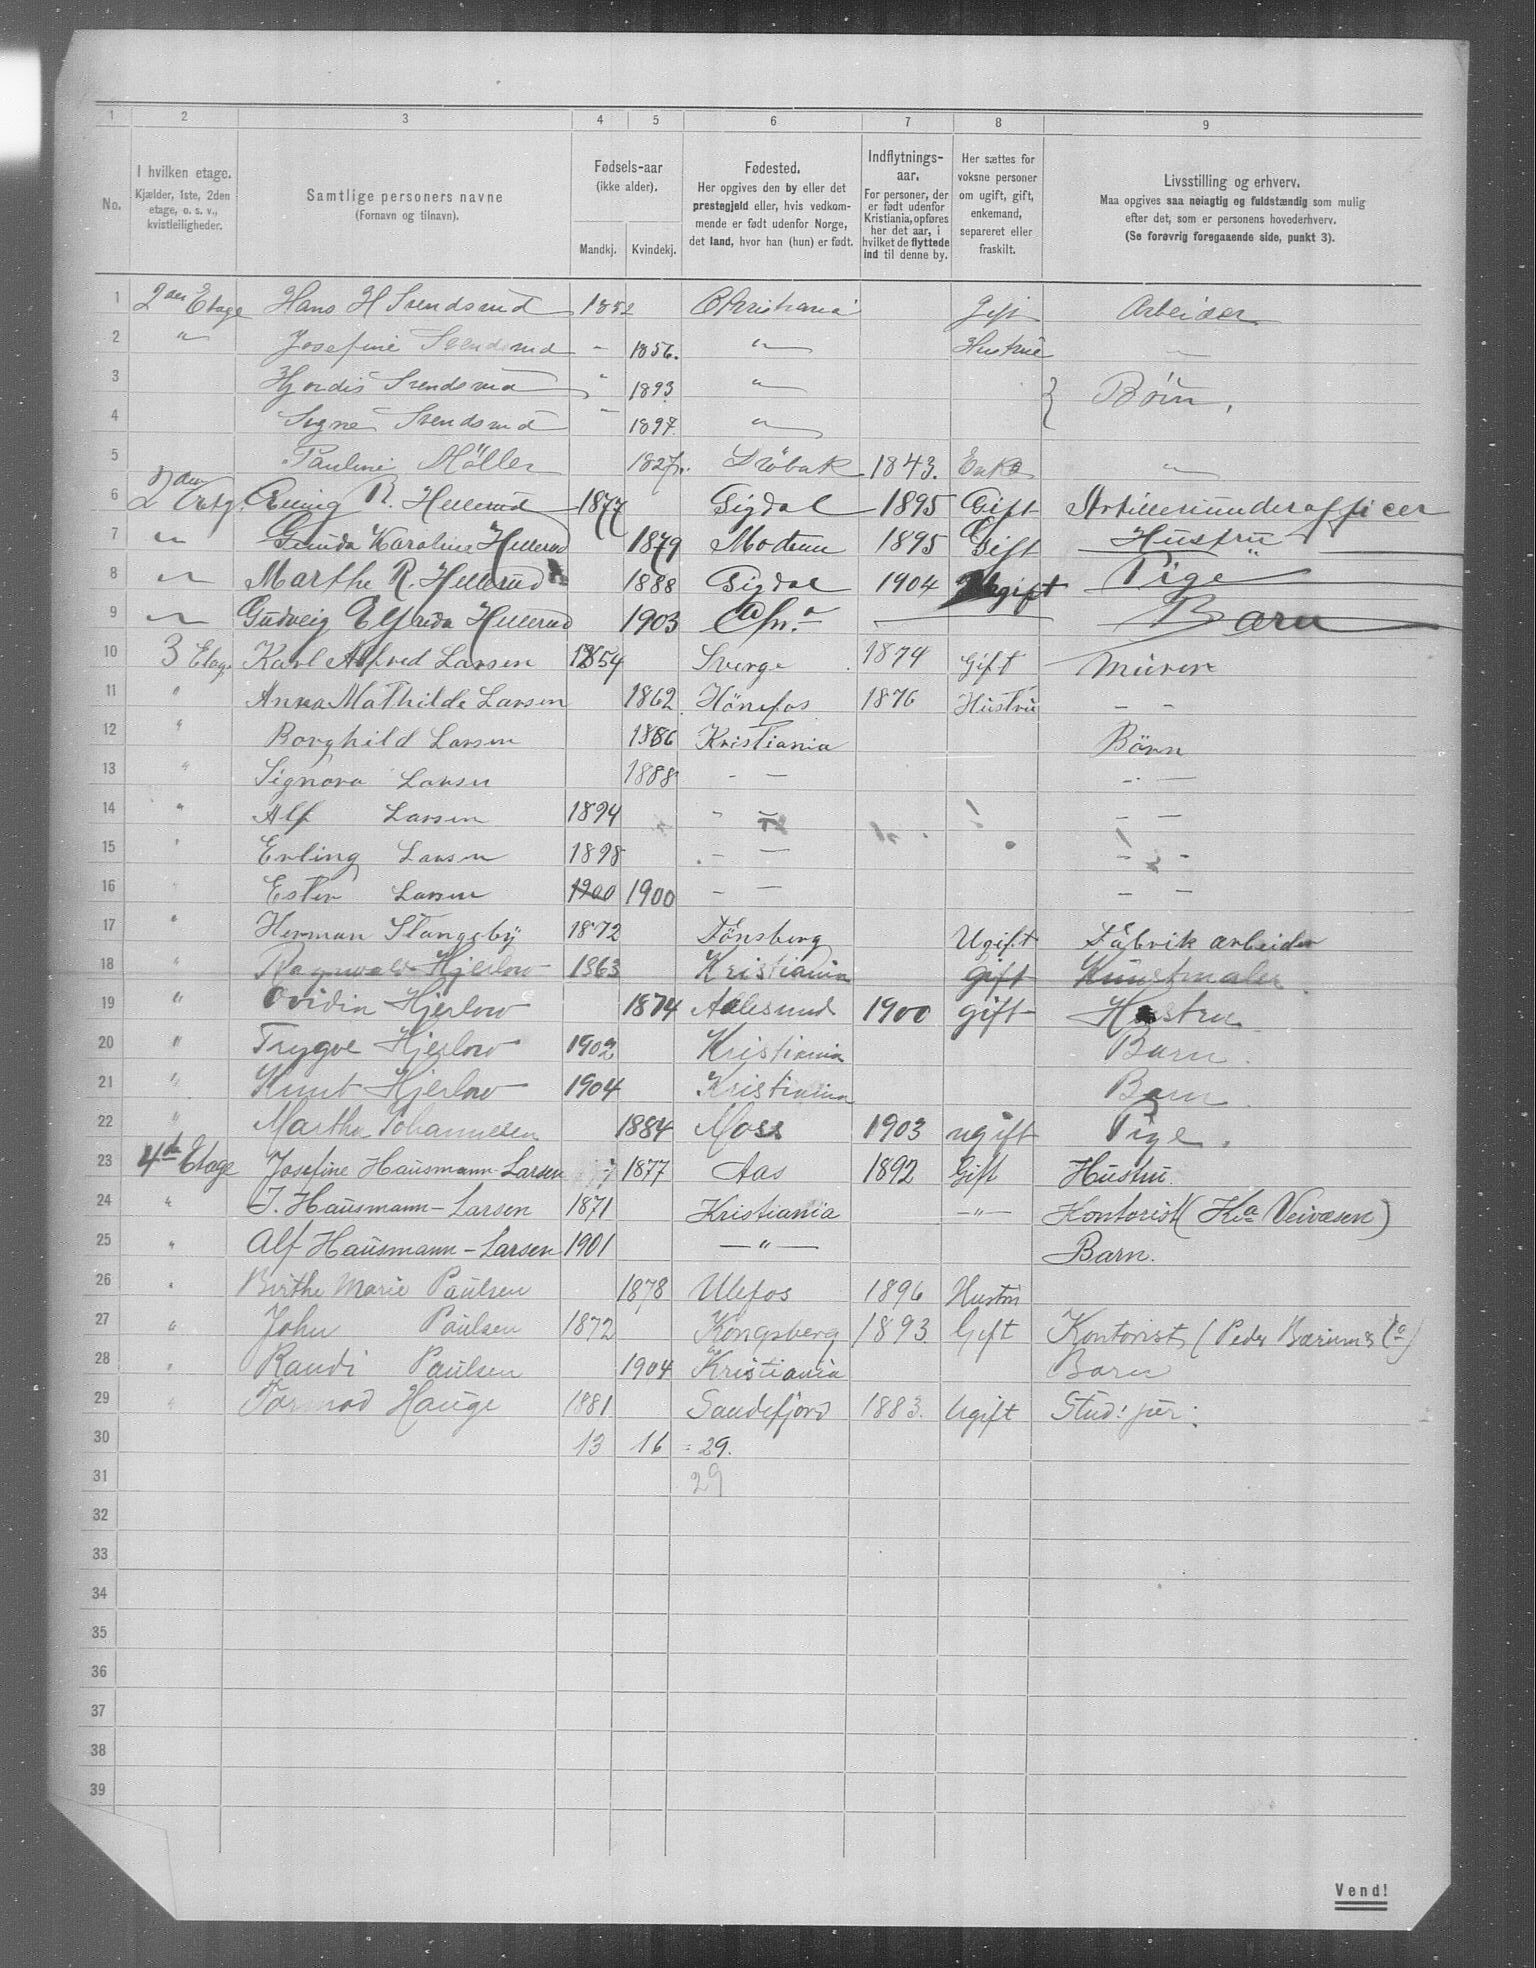 1 2 3 4 5 6 7 8 9
No.
I hvilken etage.
Kjælder, 1ste, 2den
etage, o. s. v.,
kvistleiligheder.
Samtlige personers navne
(Fornavn og tilnavn).
Fødsels-aar
(ikke alder).
Mandkj. Kvindekj.
Fødested.
Her opgives den by eller det
prestegjeld eller, hvis vedkom-
mende er født udenfor Norge,
det land, hvor han (hun) er født.
Indflytnings-
aar.
For personer, der
er født udenfor
Kristiania, opføres
her det aar, i
hvilket de flyttede
ind til denne by.
Her sættes for
voksne personer
om ugift, gift,
enkemand,
separeret eller
fraskilt.
Livsstilling og erhverv.
Maa opgives saa nøiagtig og fuldstændig som mulig
efter det, som er personens hovederhverv.
(Se forøvrig foregaaende side, punkt 3).
1 2den Etage Hans H Svendsrud 1852 Christiania Gift Arbeider
2 " Josefine Svendsrud " 1856. " Hustru "
3 Hjordis Svendsrud " 1893 " } Börn.
4 Signe Svendsrud " 1897 "
5 Pauline Möller 1827. Dröbak 1843. Enke "
6 2den Etg. R. Hellerud 1877 Sigdal 1895 Gift Artilleriunderofficer
7 " Gunda Karoline Hellerud 1879 Modum 1895 Gift Hustru
8 " Marthe R. Hellerud 1888 Sigdal 1904 Ugift Pige
9 " Gudveig Elfrida Hellerud 1903 Chr.a Barn
10 3 Etage Karl Alfred Larsen 1854 Sverge 1874 Gift Murer
11 " Anna Mathilde Larsen 1862 Hönefos 1876 Hustru – –
12 " Borghild Larsen 1886 Kristiania Börn
13 " Signora Larsen 1888 – – – –
14 " Alf Larsen 1894 – – – –
15 " Erling Larsen 1898 – – – –
16 " Ester Larsen 1900 1900 – – – –
17 " Herman Stangeby 1872 Tönsberg Ugift Fabrik arbeider
18 " Ragnvald Hjerlow 1863 Kristiania gift Kunstmaler
19 " Ovidia Hjerlow 1874 Aalesund 1900 gift Hustru
20 " Trygve Hjerlow 1902 Kristiania Barn.
21 " Knut Hjerlow 1904 Kristiania Barn.
22 " Martha Johannesen 1884 Moss 1903 ugift Pige.
23 4de Etage Josefine Hausmann-Larsen 1877 Aas 1892 Gift Hustru.
24 " J. Hausmann-Larsen 1871 Kristiania –"– Kontorist (Kra Veivæsen)
25 " Alf Hausmann-Larsen 1901 –"– Barn.
26 " Birthe Marie Paulsen 1878 Ulefos 1896 Hustru
27 " John Paulsen 1872 Kongsberg 1893. Gift Kontorist (Peder Bærums Co)
28 " Randi Paulsen 1904 Kristiania Barn
29 " Tormod Hauge 1881 Sandefjord 1883. Ugift Stud: jur:
30 13 16 = 29.
31 29
32
33
34
35
36
37
38
39
Vend!